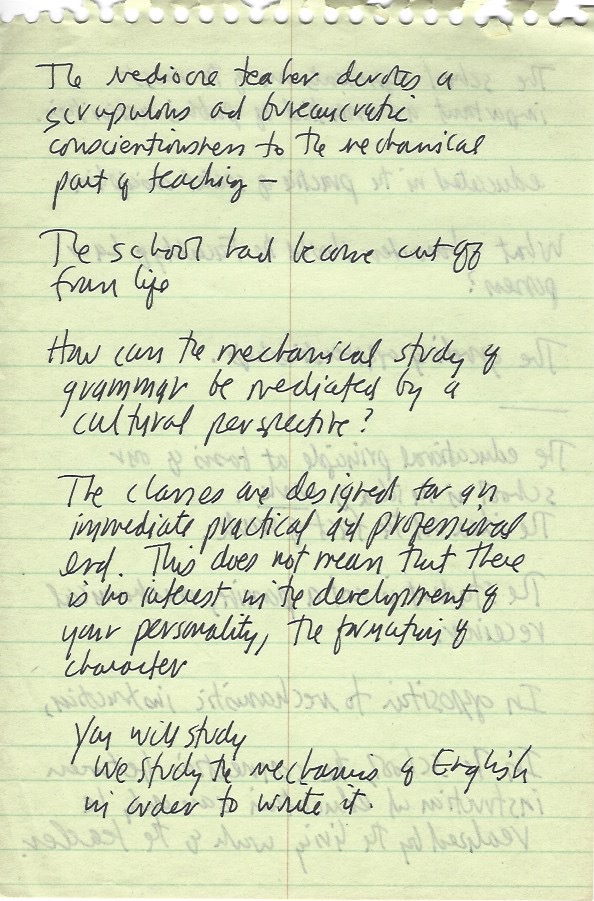 The mediocre teacher devotes a
scrupulous and bureaucratic
conscientiousness to the mechanical
part of teaching —
The school had become cut off
from life
How can the mechanical study of
grammar be mediated by a
cultural perspective?
The classes are designed for an
immediate practical and professional
end. This does not mean that there
is no interest in the development of
your personality, the formation of
character
You will study
We study the mechanics of English
in order to write it.